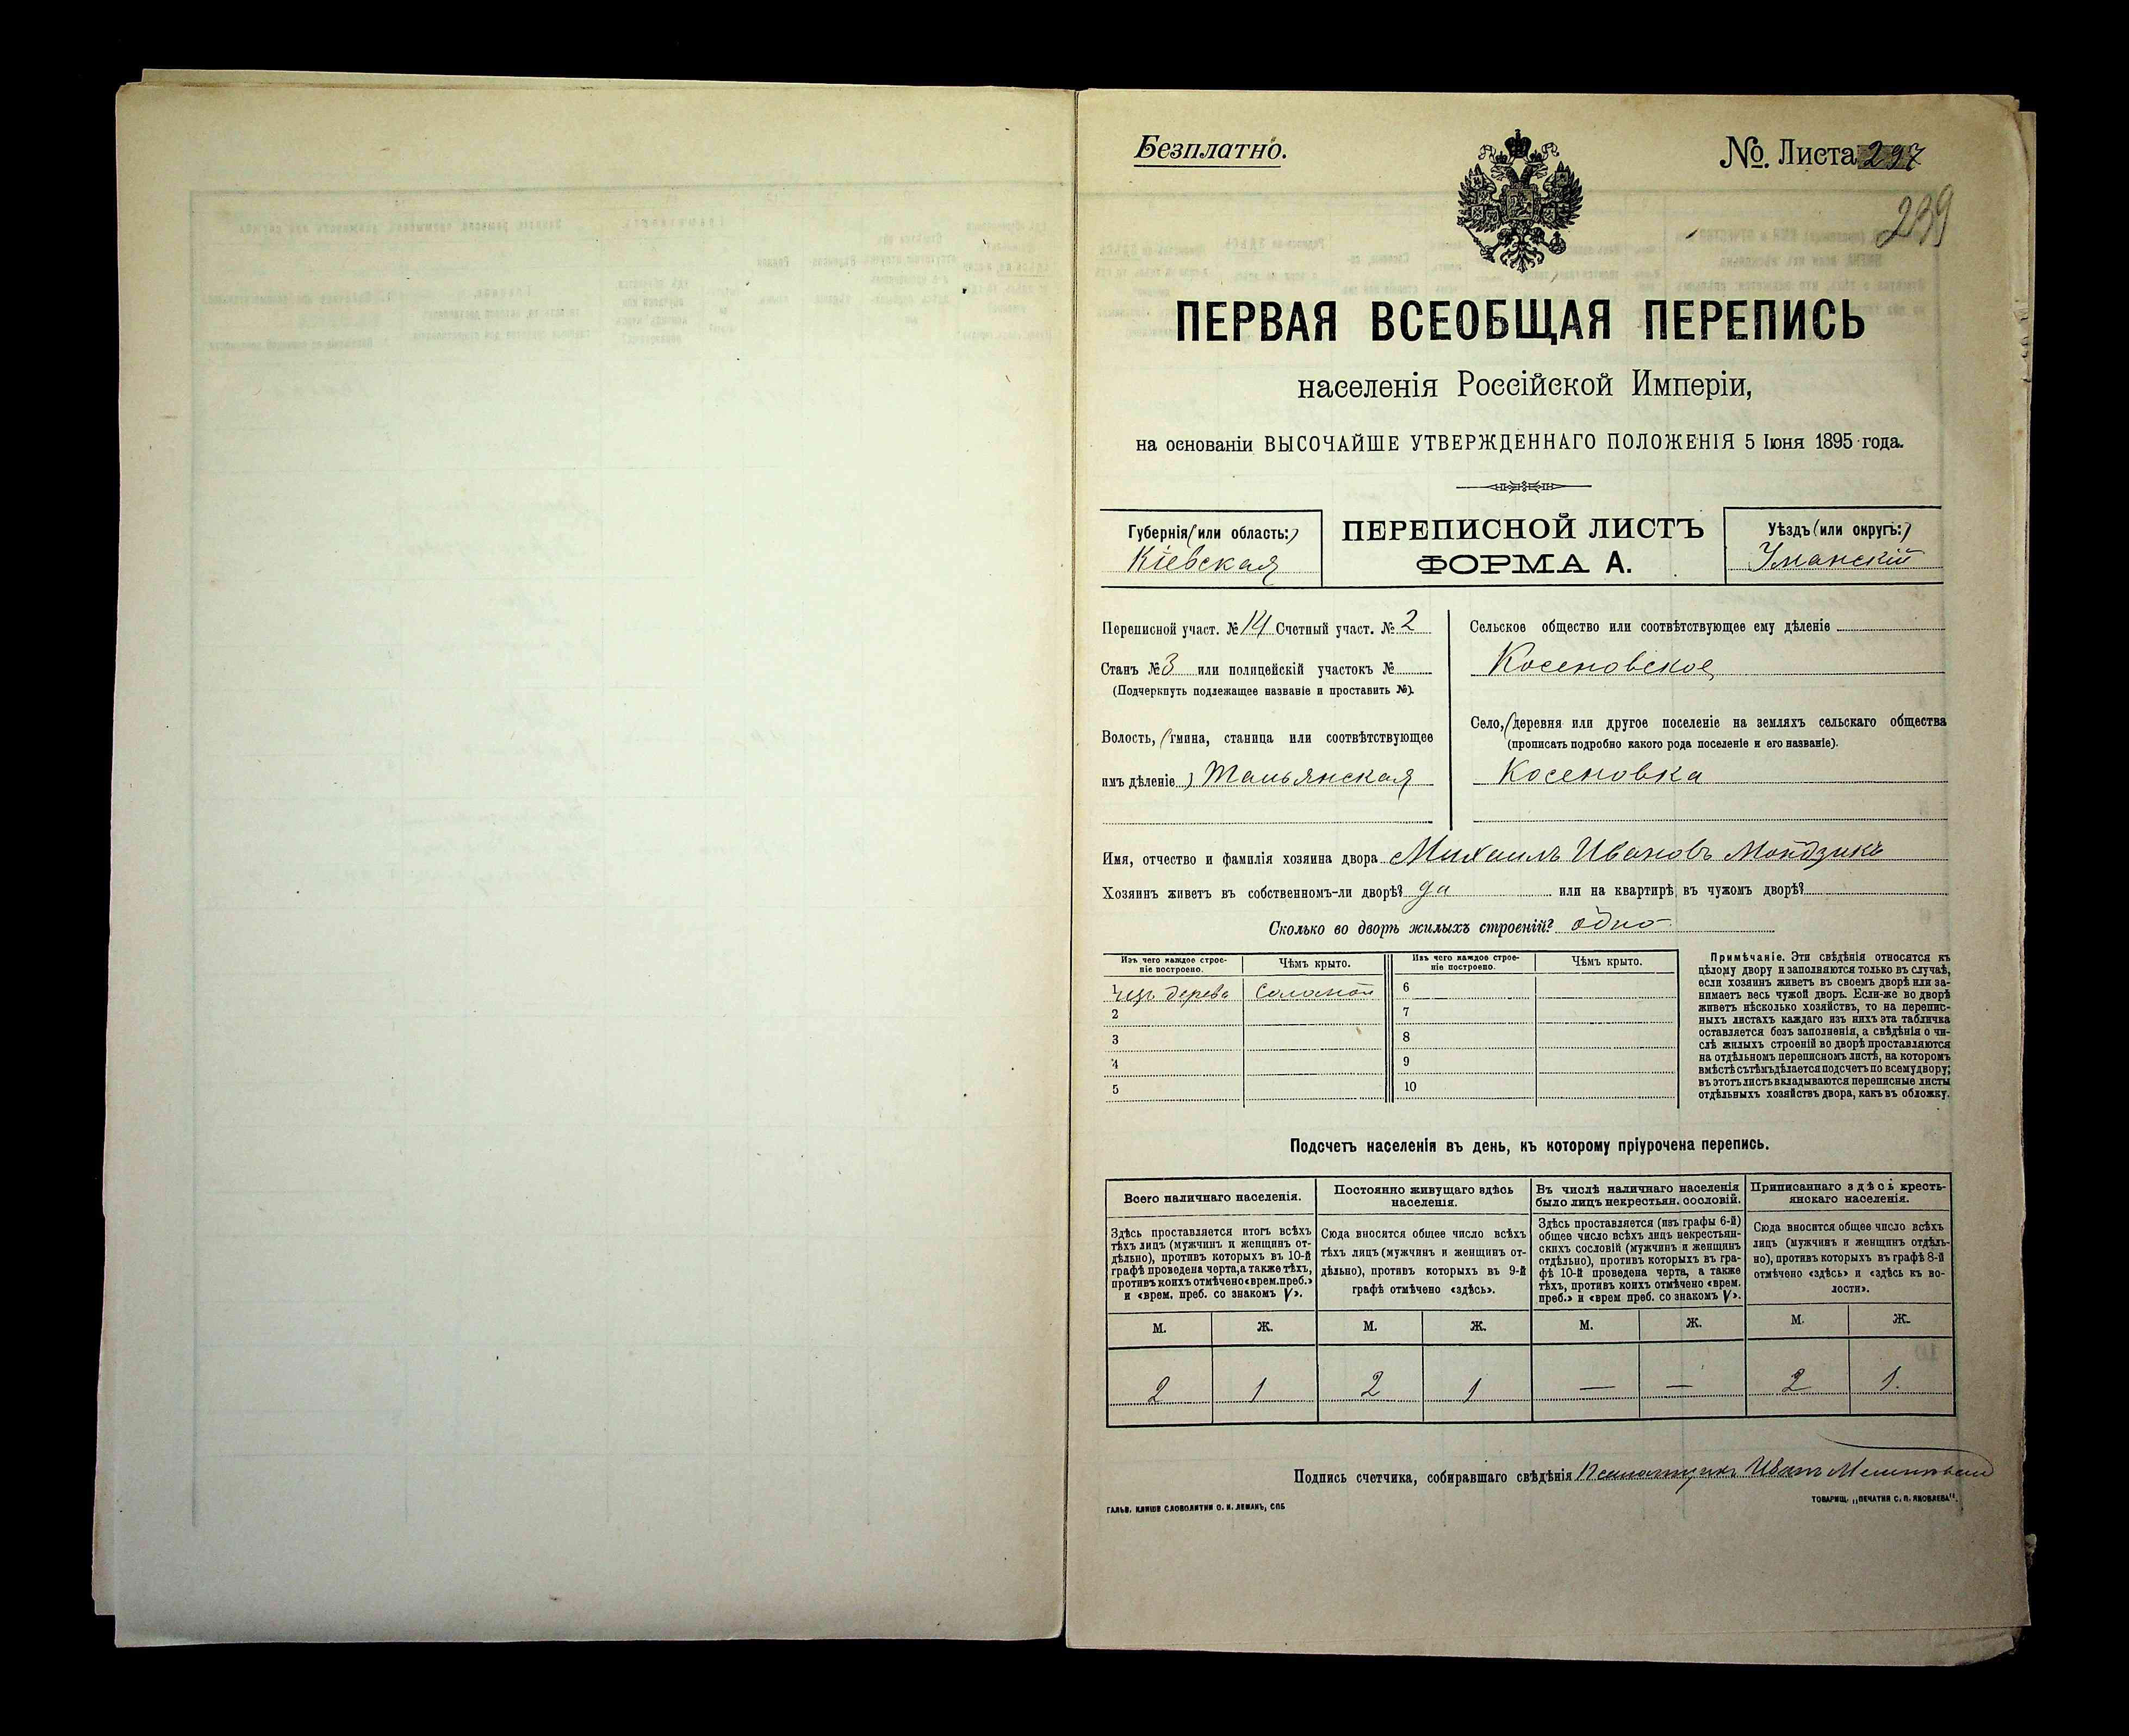 Безплатно.
№. Листа 297
239
ПЕРВАЯ ВСЕОБЩАЯ ПЕРЕПИСЬ
населенія Россійской Имперіи,
на основаніи ВЫСОЧАЙШЕ УТВЕРЖДЕННАГО ПОЛОЖЕНІЯ 5 Іюня 1895 года.
Губернія (или область:)
Кіевская
ПЕРЕПИСНОЙ ЛИСТЪ
ФОРМА А.
Уѣздъ (или округъ:)
Уманскій
Переписной участ. № 14 Счетный участ. № 2
Станъ № 3 или полицейскій участокъ №
(Подчеркнуть подлежащее названіе и проставить №).
Волость, (гмина, станица или соотвѣтствующее
имъ дѣленіе) Тальянская
Сельское общество или соотвѣтствующее ему дѣленіе
Косеновское
Село, (деревня или другое поселеніе на земляхъ сельскаго общества
(прописать подробно какого рода поселеніе и его названіе).
Косеновка
Имя, отчество и фамилія хозяина двора Михаилъ Ивановъ
Хозяинъ живетъ въ собственномъ-ли дворѣ? да или на квартирѣ въ чужомъ дворѣ?
Сколько во дворѣ жилыхъ строеній? одно
Изъ чего каждое строе-
ніе построено.
Чѣмъ крыто.
Изъ чего каждое строе-
ніе построено.
Чѣмъ крыто.
1 изъ дерева соломой
2
3
4
5
6
7
8
9
10
Примѣчаніе. Эти свѣдѣнія относятся къ
цѣлому двору и заполняются только въ случаѣ,
если хозяинъ живетъ въ своемъ дворѣ или за-
нимаетъ весь чужой дворъ. Если-же во дворѣ
живетъ нѣсколько хозяйствъ, то на перепис-
ныхъ листахъ каждаго изъ нихъ эта табличка
оставляется безъ заполненія, а свѣдѣнія о чи-
слѣ жилыхъ строеній во дворѣ проставляются
на отдѣльномъ переписномъ листѣ, на которомъ
вмѣстѣ съ тѣмъ дѣлается подсчетъ по всему двору;
въ этотъ листъ вкладываются переписные листы
отдѣльныхъ хозяйствъ двора, какъ въ обложку.
Подсчетъ населенія въ день, къ которому пріурочена перепись.
Всего наличнаго населенія.
Здѣсь проставляется итогъ всѣхъ
тѣхъ лицъ (мужчинъ и женщинъ от-
дѣльно), противъ которыхъ въ 10-й
графѣ проведена черта, а также тѣхъ,
противъ коихъ отмѣчено «врем. преб.»
и «врем. преб. со знакомъ V».
Постоянно живущаго здѣсь
населенія.
Сюда вносится общее число всѣхъ
тѣхъ лицъ (мужчинъ и женщинъ от-
дѣльно), противъ которыхъ въ 9-й
графѣ отмѣчено «здѣсь».
Въ числѣ наличнаго населенія
было лицъ некрестьян. сословій.
Здѣсь проставляется (изъ графы 6-й)
общее число всѣхъ лицъ некрестьян-
скихъ сословій (мужчинъ и женщинъ
отдѣльно), противъ которыхъ въ гра-
фѣ 10-й проведена черта, а также
тѣхъ, противъ коихъ отмѣчено «врем.
преб.» и «врем преб. со знакомъ V».
Приписаннаго здѣсь кресть-
янскаго населенія.
Сюда вносится общее число всѣхъ
лицъ (мужчинъ и женщинъ отдѣль-
но), противъ которыхъ въ графѣ 8-й
отмѣчено «здѣсь» и «здѣсь къ во-
лости».
М. Ж. М. Ж. М. Ж. М. Ж.
2 1 2 1 — — 2 1.
Подпись счетчика, собиравшаго свѣдѣнія Псаломщикъ Иванъ
ГАЛЬВ. КЛИШЕ СЛОВОЛИТНИ О. И. ЛЕМАНЪ, СПБ
ТОВАРИЩ. „ПЕЧАТНЯ С. П. ЯКОВЛЕВА".